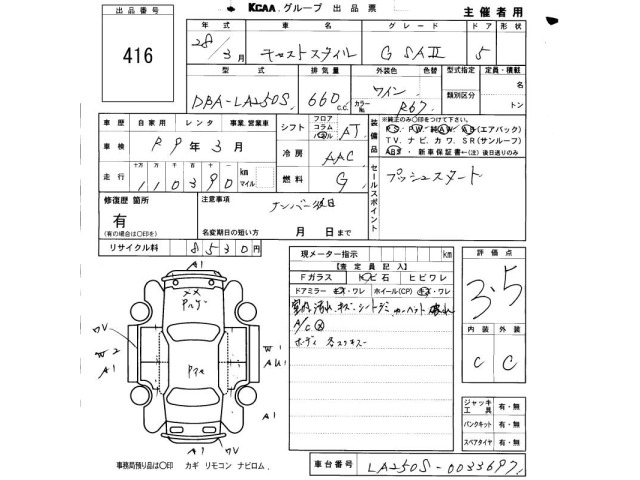 出品番号
416
KCAA グループ 出品票
主催者用
年式 車名 グレード ドア 形状
28/3月 キャストスタイル G SAⅡ 5
型式 排気量 外装色 色替 型式指定 定員・積載
DBA-LA250S 660 c.c. ワイン カラーNo. R67 類別区分 名 トン
車歴 自家用 レンタ 事業、営業車
車検 R9年3月
走行 十万 万 千 百 十 一 km マイル
110390
シフト フロア コラム AT
冷房 AAC
燃料 G
装備品
※純正のみ〇印をつけて下さい。
PS PW 純AW AB(エアバック)
TV. ナビ. カワ. SR(サンルーフ)
ABS 新車保証書←(注)後日送りのみ
セールスポイント
プッシュスタート
修復歴 箇所
有
(有の場合は〇印を)
注意事項
ナンバー後日
名変期日の短い方 月 日まで
リサイクル料 8530円
現メーター指示 km
【査定員記入】
Fガラス トビ石 ヒビワレ
ドアミラー キズ・ワレ ホイール(CP) キズ・ワレ
A/C
評価点
3.5
内装 外装
C C
ジャッキ 工具 有・無
パンクキット 有・無
スペアタイヤ 有・無
A1
UV
W2
A1
W1
AU1
A1
A1
事務局預り品は〇印 カギ リモコン ナビロム.
車台番号 LA250S-0033697